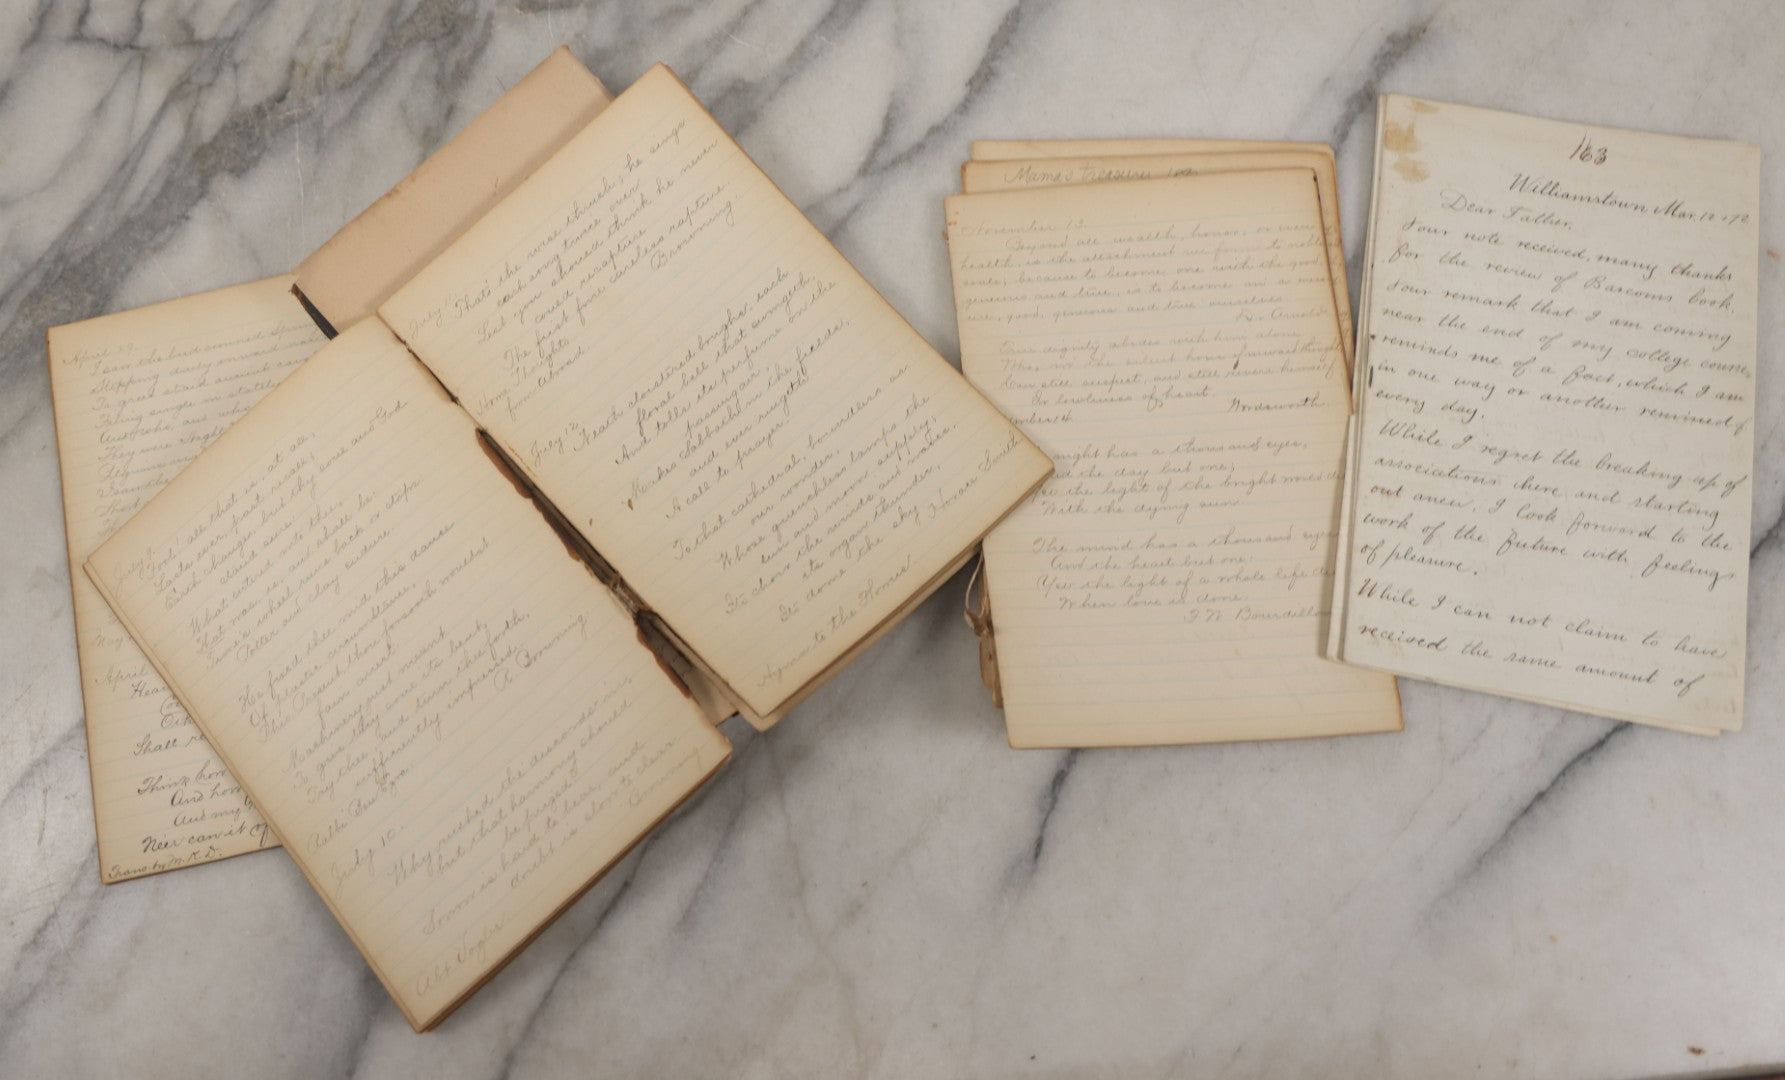 April 29.
I saw the bud-crowned Spring
Stepping daily onward
To greet staid ancient
Filing single in stately
And
They were
Shall re
Think how
And how
And my
Ne'er can it
Trans. by M. K. D.
July 9.
Fool! all that is at all,
Lasts ever, past recall;
Earth changes, but thy soul and God
stand sure:
What entered into thee,
That was, is, and shall be:
Time's wheel runs back or stops
Potter and clay endure.
He fixed thee mid this dance
Of plastic circumstance,
This Present, thou forsooth wouldst
fain arrest:
Machinery just meant
To give thy soul its bent,
Try thee and turn thee forth,
sufficiently impressed.
R. Browning
Rabbi Ben Ezra.
July 10.
Why rushed the discords in,
but that harmony should
be prized?
Sorrow is hard to bear, and
doubt is slow to clear.
Browning
Abt Vogler
July 11
That's the wise thrush; he sings
each song twice over
Lest you should think he never
could recapture
The first fine careless rapture.
Browning
Home Thoughts
from abroad.
July 12
'Neath clustered boughs, each
floral bell that swingeth,
And tolls its perfume on the
passing air,
Makes Sabbath in the fields,
and ever ringeth
A call to prayer.
To that cathedral, boundless as
our wonder,
Whose quenchless lamps the
sun and moon supply;
Its choir the winds and waves,
its organ thunder,
Its dome the sky.
Horace Smith
Hymn to the Flowers.
Mama's Treasures
November 13.
Beyond all wealth, honor, or even
health, is the attachment we form to noble
souls; because to become one with the good,
generous and true, is to become in a
good, generous and true ourselves.
Dr. Arnold
True dignity abides with him alone
Who, in the silent hour of inward thought
Can still suspect, and still revere himself
In lowliness of heart.
Wordsworth.
mber 14
night has a thousand eyes,
the day but one;
Yet the light of the bright world
With the dying sun.
The mind has a thousand eyes
And the heart but one:
Yet the light of a whole life
When love is done.
F W Bourdillon
163
Williamstown Mar. 12
Dear Father,
Your note received, many thanks
for the review of Barcoms book.
Your remark that I am coming
near the end of my college course,
reminds me of a fact, which I am
in one way or another remined of
every day.
While I regret the breaking up of
associations here and starting
out anew, I look forward to the
work of the future with feelings
of pleasure.
While I can not claim to have
received the same amount of